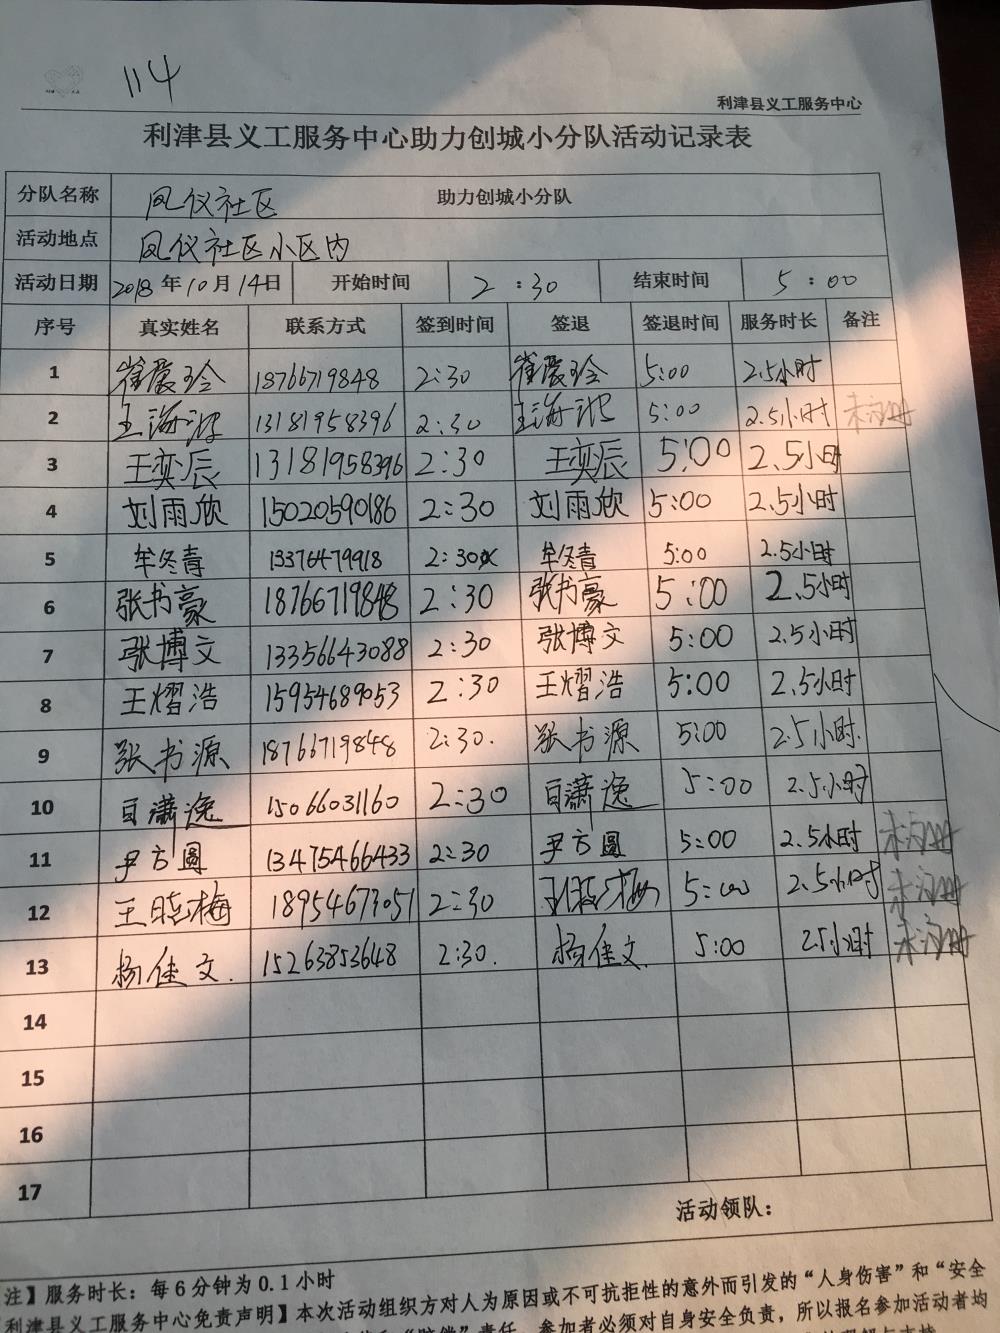 114
利津县义工服务中心
利津县义工服务中心助力创城小分队活动记录表
分队名称 凤仪社区 助力创城小分队
活动地点 凤仪社区小区内
活动日期 2018年10月14日 开始时间 2:30 结束时间 5:00
序号 真实姓名 联系方式 签到时间 签退 签退时间 服务时长 备注
1 崔爱玲 18766719848 2:30 崔爱玲 5:00 2.5小时
2 王海波 13181958396 2:30 王海波 5:00 2.5小时 未注册
3 王奕辰 13181958396 2:30 王奕辰 5:00 2.5小时
4 刘雨欣 15020590186 2:30 刘雨欣 5:00 2.5小时
5 牟冬青 13376479918 2:30 牟冬青 5:00 2.5小时
6 张书豪 18766719848 2:30 张书豪 5:00 2.5小时
7 张博文 13356643088 2:30 张博文 5:00 2.5小时
8 王熠浩 15954689053 2:30 王熠浩 5:00 2.5小时
9 张书源 18766719848 2:30. 张书源 5:00 2.5小时.
10 潇逸 15066031160 2:30 潇逸 5:00 2.5小时
11 尹方圆 13475466433 2:30 尹方圆 5:00 2.5小时 未注册
12 王晓梅 18954673051 2:30 王晓梅 5:00 2.5小时 未注册
13 杨佳文. 15263853648 2:30. 杨佳文. 5:00 2.5小时 未注册
14
15
16
17
活动领队：
注】服务时长：每6分钟为0.1小时
利津县义工服务中心免责声明】本次活动组织方对人为原因或不可抗拒性的意外而引发的“人身伤害”和“安全
“赔偿”责任。参加者必须对自身安全负责，所以报名参加活动者均